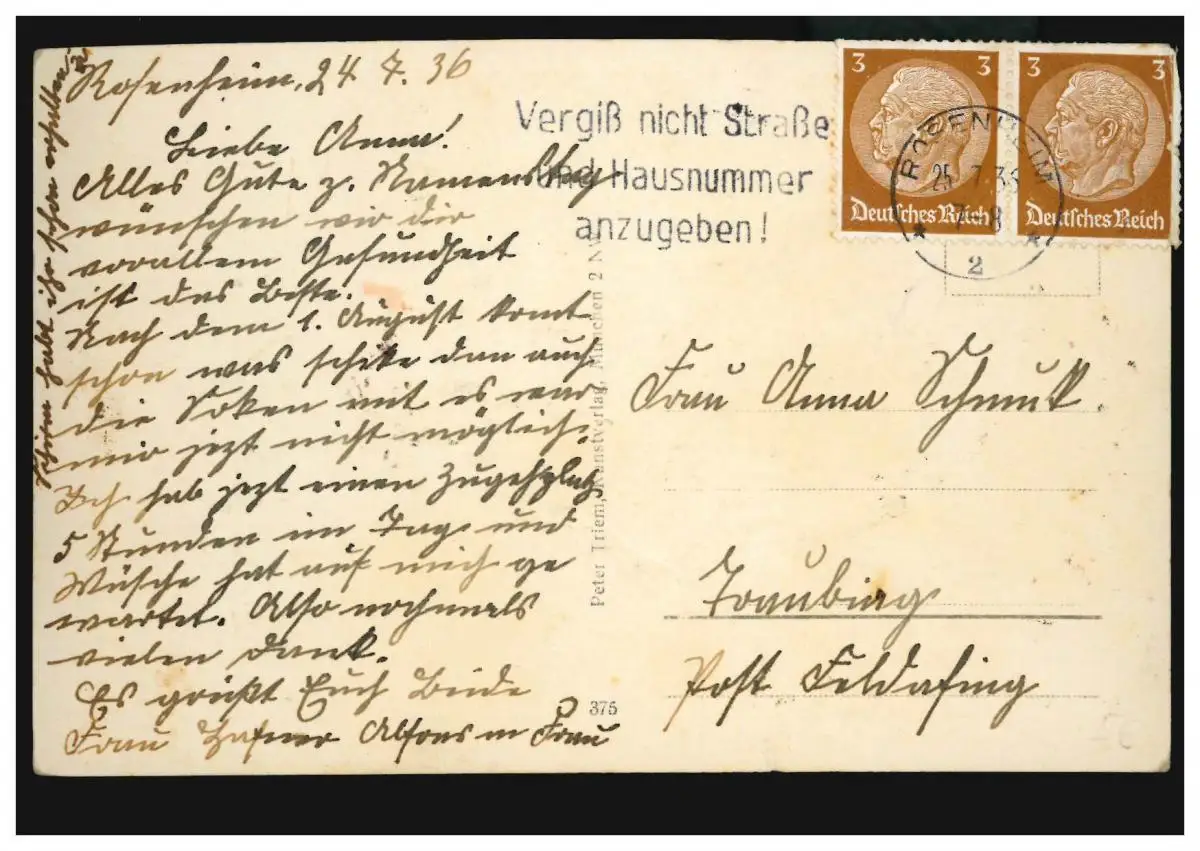 Rosenheim, 24 7. 36
Liebe Anna!
Alles Gute z. Namenstag
wünschen wir dir
vorallem Gesundheit
ist das Beste.
Nach dem 1. August komt
schon was schike dan auch
die Soken mit es war
mir jezt nicht möglich.
Ich hab jezt einen Zugehplatz
5 Stunden im Tag und
Wäsche hat auf mich ge
wartet. Also nochmals
vielen Dank.
Es grüßt Euch Beide
Frau Hafner Alfons m Frau
habt ihr schon erhalten
Vergiß nicht Straße
und Hausnummer
anzugeben!
3 3
Deutsches Reich
3 3
Deutsches Reich
ROSENHEIM
25. 7. 36
7-8
2
Peter Triem, Kunstverlag, München 2 N
375
Frau Anna Schmuk.
Traubing
Post Feldafing